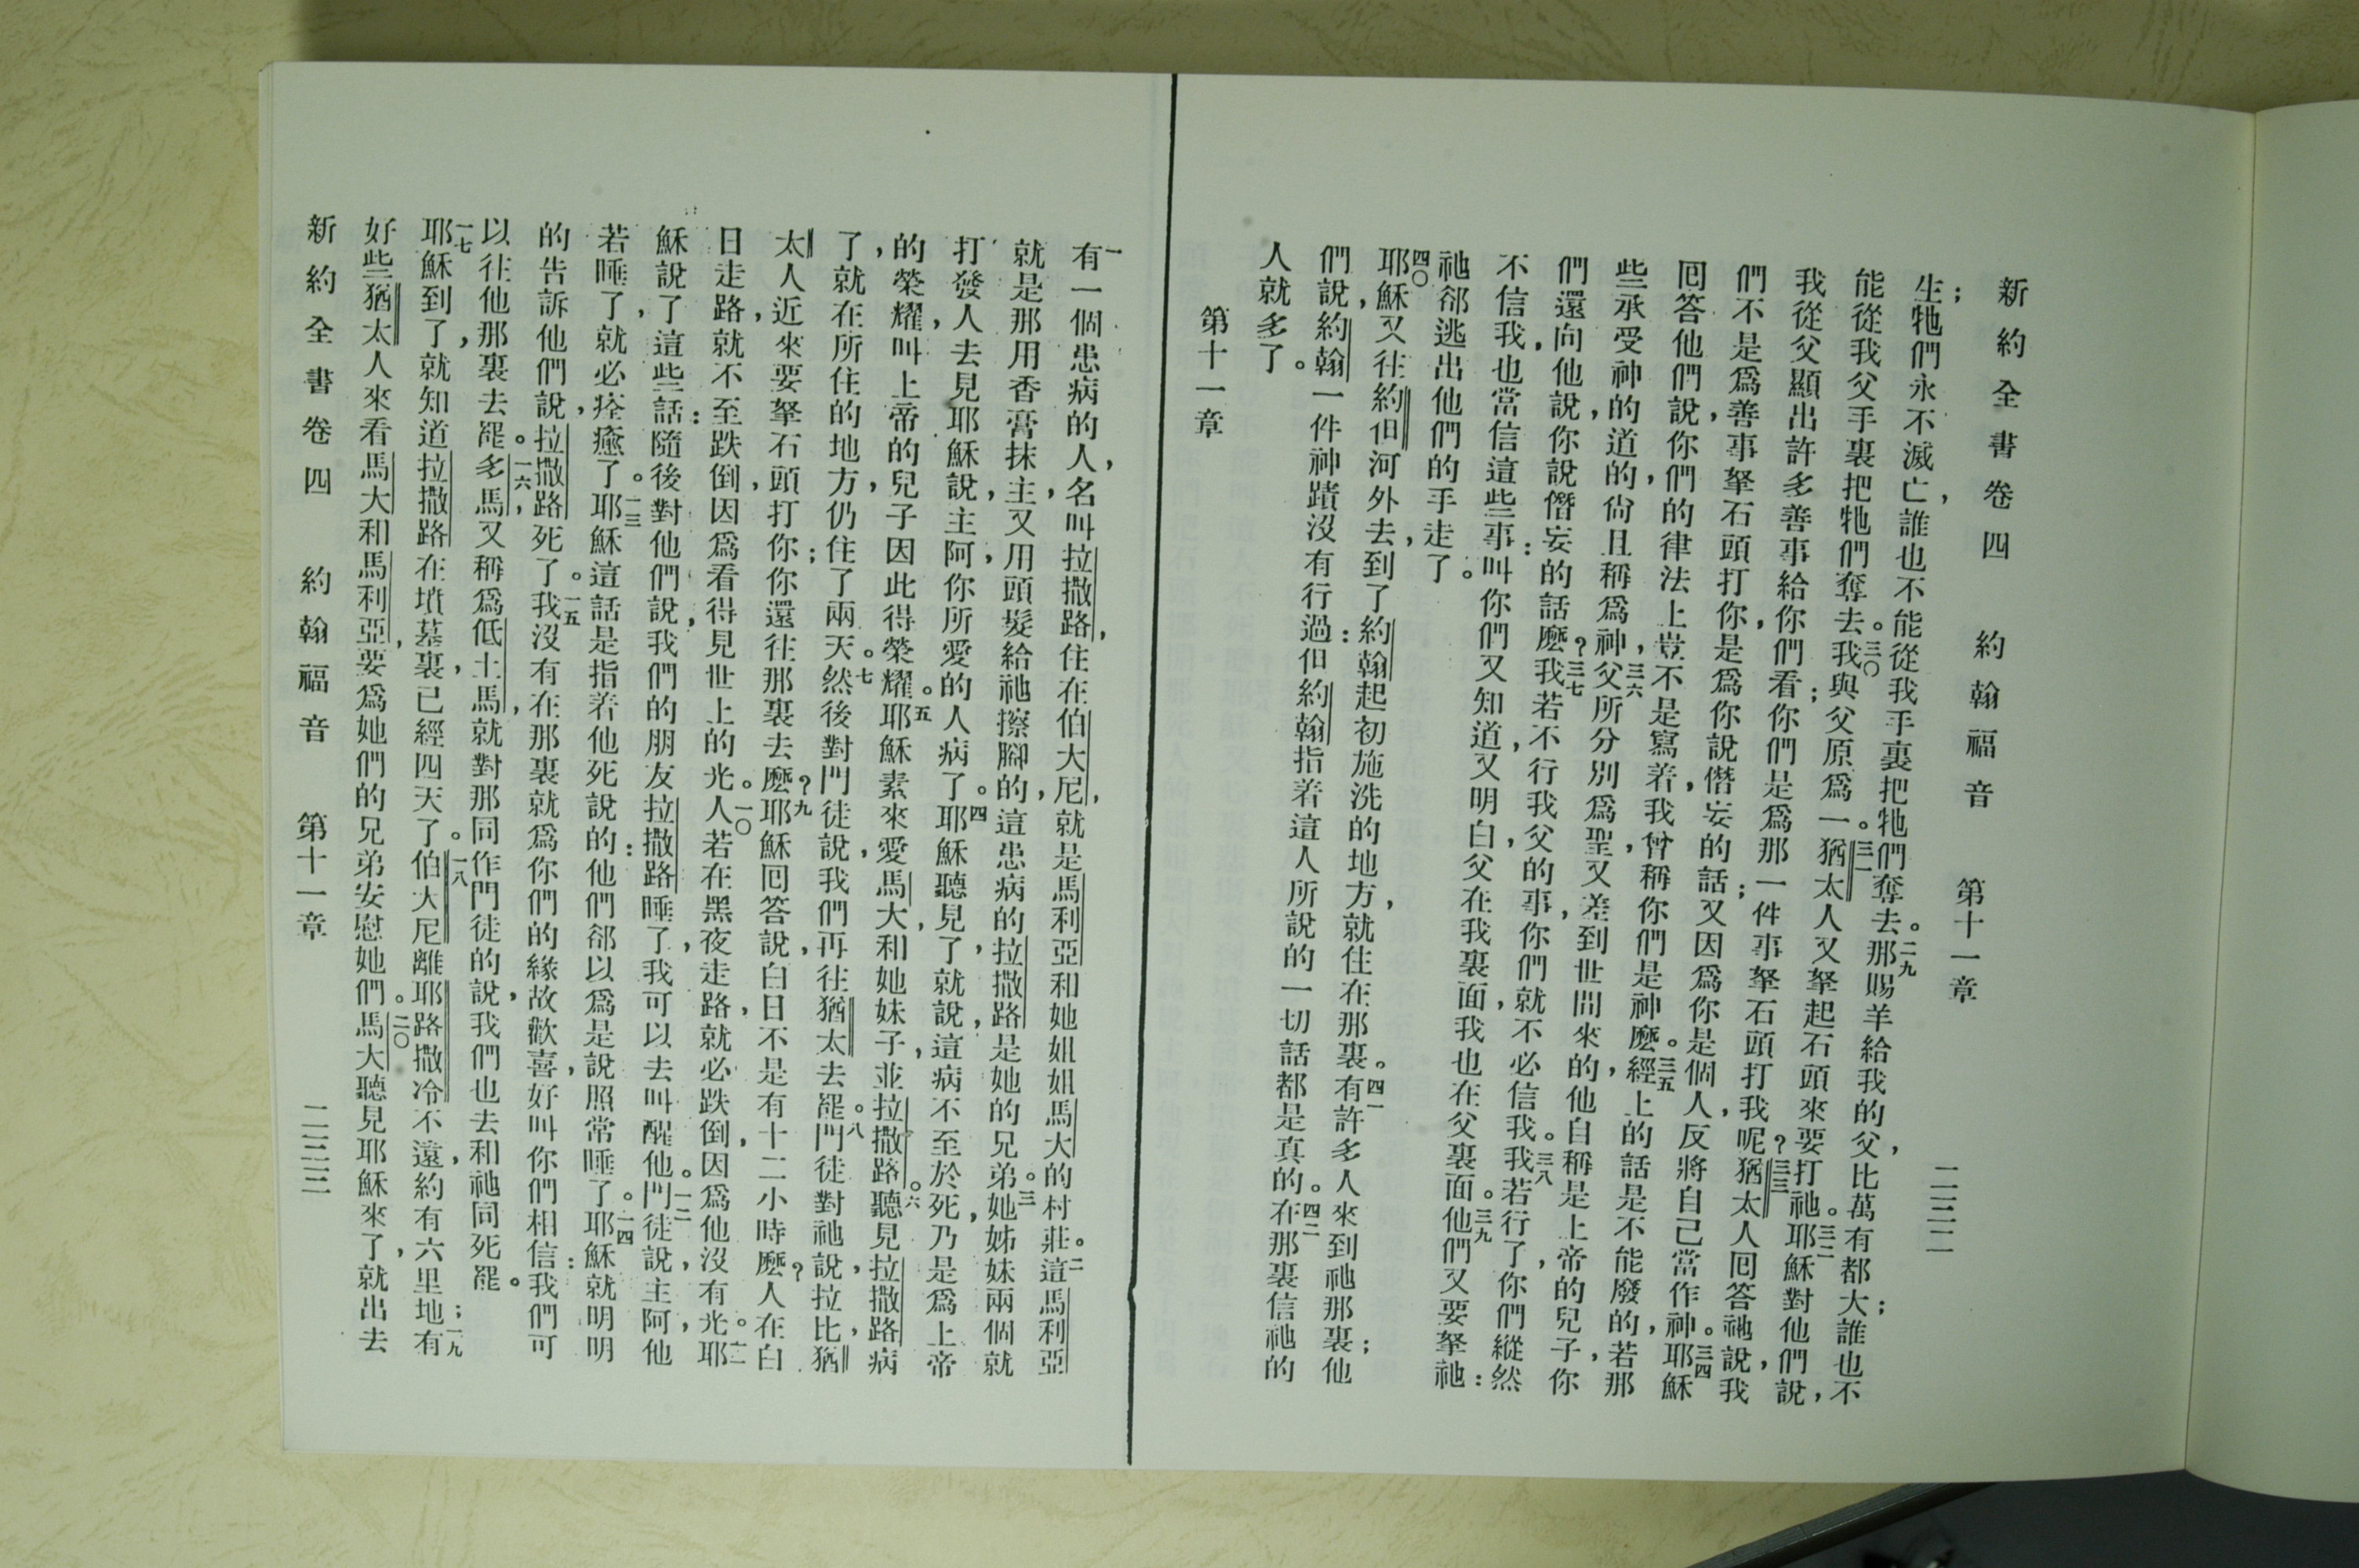 新約全書卷四 約翰福音 第十一章 二三二
生;牠們永不滅亡,誰也不能從我手裏把牠們奪去。二九那賜羊給我的父,比萬有都大;誰也不
能從我父手裏把牠們奪去。三〇我與父原爲一。三一猶太人又拏起石頭來要打祂。三二耶穌對他們說,
我從父顯出許多善事給你們看;你們是爲那一件事拏石頭打我呢?三三猶太人囘答祂說,我
們不是爲善事拏石頭打你,是爲你說僭妄的話;又因爲你是個人,反將自己當作神。三四耶穌
囘答他們說,你們的律法上,豈不是寫着,我曾稱你們是神麼。三五經上的話是不能廢的,若那
些承受神的道的,尙且稱爲神,三六父所分別爲聖,又差到世間來的,他自稱是上帝的兒子,你
們還向他說,你說僭妄的話麼?三七我若不行我父的事,你們就不必信我。三八我若行了,你們縱然
不信我,也當信這些事:叫你們又知道,又明白,父在我裏面,我也在父裏面。三九他們又要拏祂:
祂郤逃出他們的手走了。
四〇耶穌又往約但河外去,到了約翰起初施洗的地方,就住在那裏。四一有許多人來到祂那裏;他
們說,約翰一件神蹟沒有行過:但約翰指着這人所說的一切話都是真的。四二在那裏信祂的
人就多了。
第十一章
一有一個患病的人,名叫拉撒路,住在伯大尼,就是馬利亞和她姐姐馬大的村莊。二這馬利亞
就是那用香膏抹主,又用頭髮給祂擦腳的,這患病的拉撒路是她的兄弟。三她姊妹兩個就
打發人去見耶穌說,主阿,你所愛的人病了。四耶穌聽見了,就說,這病不至於死,乃是爲上帝
的榮耀,叫上帝的兒子因此得榮耀。五耶穌素來愛馬大和她妹子,並拉撒路。六聽見拉撒路病
了,就在所住的地方,仍住了兩天。七然後對門徒說,我們再往猶太去罷。八門徒對祂說,拉比,猶
太人近來要拏石頭打你;你還往那裏去麼?九耶穌囘答說,白日不是有十二小時麼?人在白
日走路,就不至跌倒,因爲看得見世上的光。一〇人若在黑夜走路,就必跌倒,因爲他沒有光。一一耶
穌說了這些話:隨後對他們說,我們的朋友拉撒路睡了,我可以去叫醒他。一二門徒說,主阿,他
若睡了,就必痊癒了。一三耶穌這話是指着他死說的:他們郤以爲是說照常睡了。一四耶穌就明明
的告訴他們說,拉撒路死了。一五我沒有在那裏就爲你們的緣故歡喜,好叫你們相信:我們可
以往他那裏去罷。一六多馬,又稱爲低土馬,就對那同作門徒的說,我們也去和祂同死罷。
一七耶穌到了,就知道拉撒路在墳墓裏,已經四天了。一八伯大尼離耶路撒冷不遠,約有六里地;一九有
好些猶太人來看馬大和馬利亞,要爲她們的兄弟安慰她們。二〇馬大聽見耶穌來了,就出去
新約全書卷四 約翰福音 第十一章 二三三